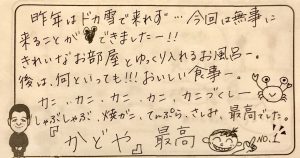 昨年はドカ雪で来れず…今回は無事に
来ることができましたー!!
きれいなお部屋とゆっくり入れるお風呂ー。
後は、何といっても!!!おいしい食事ー。
カニ、カニ、カニ、カニ、カニづくしー
しゃぶしゃぶ、焼ガニ、てんぷら、さしみ、最高でした。
『かどや』最高
NO.1